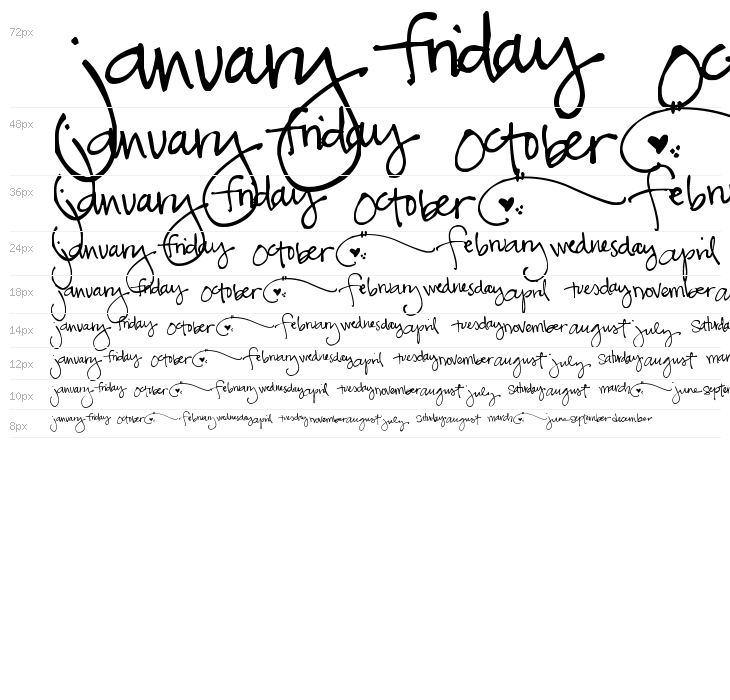 72px january friday oc
48px january friday october
36px january friday october febru
24px january friday october february wednesday april
18px january friday october february wednesday april tuesday november a
14px january friday october february wednesday april tuesday november august july Saturda
12px january friday october february wednesday april tuesday november august july Saturday august mar
10px january friday october february wednesday april tuesday november august july Saturday august march june septem
8px january friday october february wednesday april tuesday november august july Saturday august march june september december